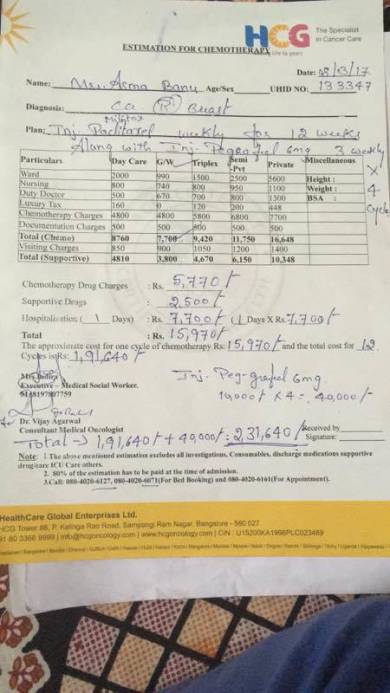 HCG
The Specialist
in Cancer Care
ESTIMATION FOR CHEMOTHERAPY
Date: 08/3/17
Name: Mrs. Asma Banu Age/Sex UHID NO: 133347
Diagnosis: Ca (Rt) Breast
Plan: Inj. Paclitaxel weekly for 12 weeks
along with Inj. Pegrafeel 6mg 3 weekly
X 4 cycle
Particulars Day Care G/W Triplex Semi -Pvt Private Miscellaneous
Ward 2000 990 1500 2500 5600 Height :
Nursing 800 740 800 950 1100 Weight :
Duty Doctor 500 670 700 800 1300 BSA :
Luxury Tax 160 0 120 200 448
Chemotherapy Charges 4800 4800 5800 6800 7700
Documentation Charges 500 500 500 500 500
Total (Chemo) 8760 7,700 9,420 11,750 16,648
Visiting Charges 850 900 1050 1200 1400
Total (Supportive) 4810 3,800 4,670 6,150 10,348
Chemotherapy Drug Charges : Rs. 5,770/-
Supportive Drugs : Rs. 2,500/-
Hospitalization ( 1 Days) : Rs. 7,700/- (1 Days X Rs 7,700/-
Total : Rs. 15,970/-
The approximate cost for one cycle of chemotherapy Rs: 15,970/- and the total cost for 12
Cycles is Rs: 1,91,640/-
Executive – Medical Social Worker.
Inj. Peg-grafeel 6mg
10,000/- X 4 = 40,000/-
Dr. Vijay Agarwal
Consultant Medical Oncologist
Received by
Signature:
Total → 1,91,640/- + 40,000/- : 2,31,640/-
Note: 1.The above mentioned estimation excludes all investigations, Consumables, discharge medications supportive
drug/care ICU Care others.
2. 80% of the estimation has to be paid at the time of admission.
3.Call: 080-4020-6127, 080-4020-6071(For Bed Booking) and 080-4020-6161(For Appointment).
HealthCare Global Enterprises Ltd.
HCG Tower #8, P. Kalinga Rao Road, Sampangi Ram Nagar, Bangalore - 560 027
91 80 3366 9999 | info@hcgoncology.com | www.hcgoncology.com | CIN : U15200KA1998PLC023489